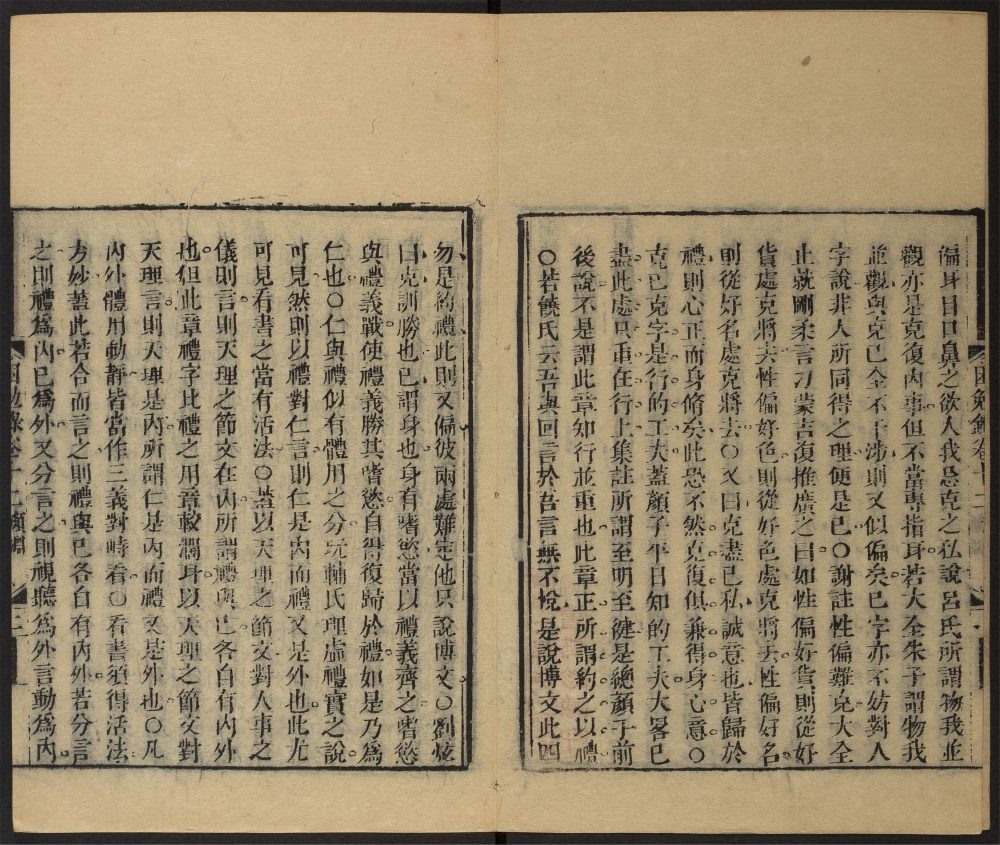 偏身目口鼻之欲人我忌克之私說呂氏所謂物我並
觀亦是克復內事但不當專指身若大全朱子謂物我
並觀與克己全不干涉則又似偏矣己字亦不妨對人
字說非人所同得之理便是己○謝註性偏難克大全
止就剛柔言刁蒙吉復推廣之曰如性偏好貨則從好
貨處克將去性偏好色則從好色處克將去性偏好名
則從好名處克將去○又曰克盡己私誠意也皆歸於
禮則心正而身脩矣此恐不然克復俱兼得身心意○
克己克字是行的工夫蓋顏子平日知的工夫大畧已
盡此處只重在行上集註所謂至明至健是總顏子前
後說不是謂此章知行並重也此章正所謂約之以禮
○若饒氏云吾與回言於吾言無不悅是說博文此四
勿是約禮此則又偏彼兩處難定他只說博文○劉炫
曰克訓勝也己謂身也身有嗜慾當以禮義齊之嗜慾
與禮義戰使禮義勝其嗜慾自得復歸於禮如是乃為
仁也○仁與禮似有體用之分玩輔氏理虛禮實之說
可見然則以禮對仁言則仁是內而禮又是外也此尤
可見看書之當有活法○蓋以天理之節文對人事之
儀則言則天理之節文在內所謂禮與己各自有內外
也但此章禮字比禮之用章較濶身以天理之節文對
天理言則天理是內所謂仁是內而禮又是外也○凡
內外體用動靜皆當作三義對峙看○看書須得活法
方妙蓋此若合而言之則禮與己各自有內外若分言
之則禮為內己為外又分言之則視聽為外言動為內
困勉錄卷十二 顏淵 三